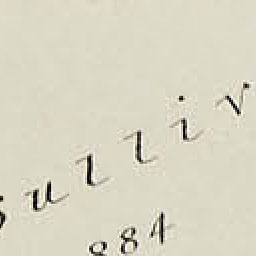 Sulliv
884